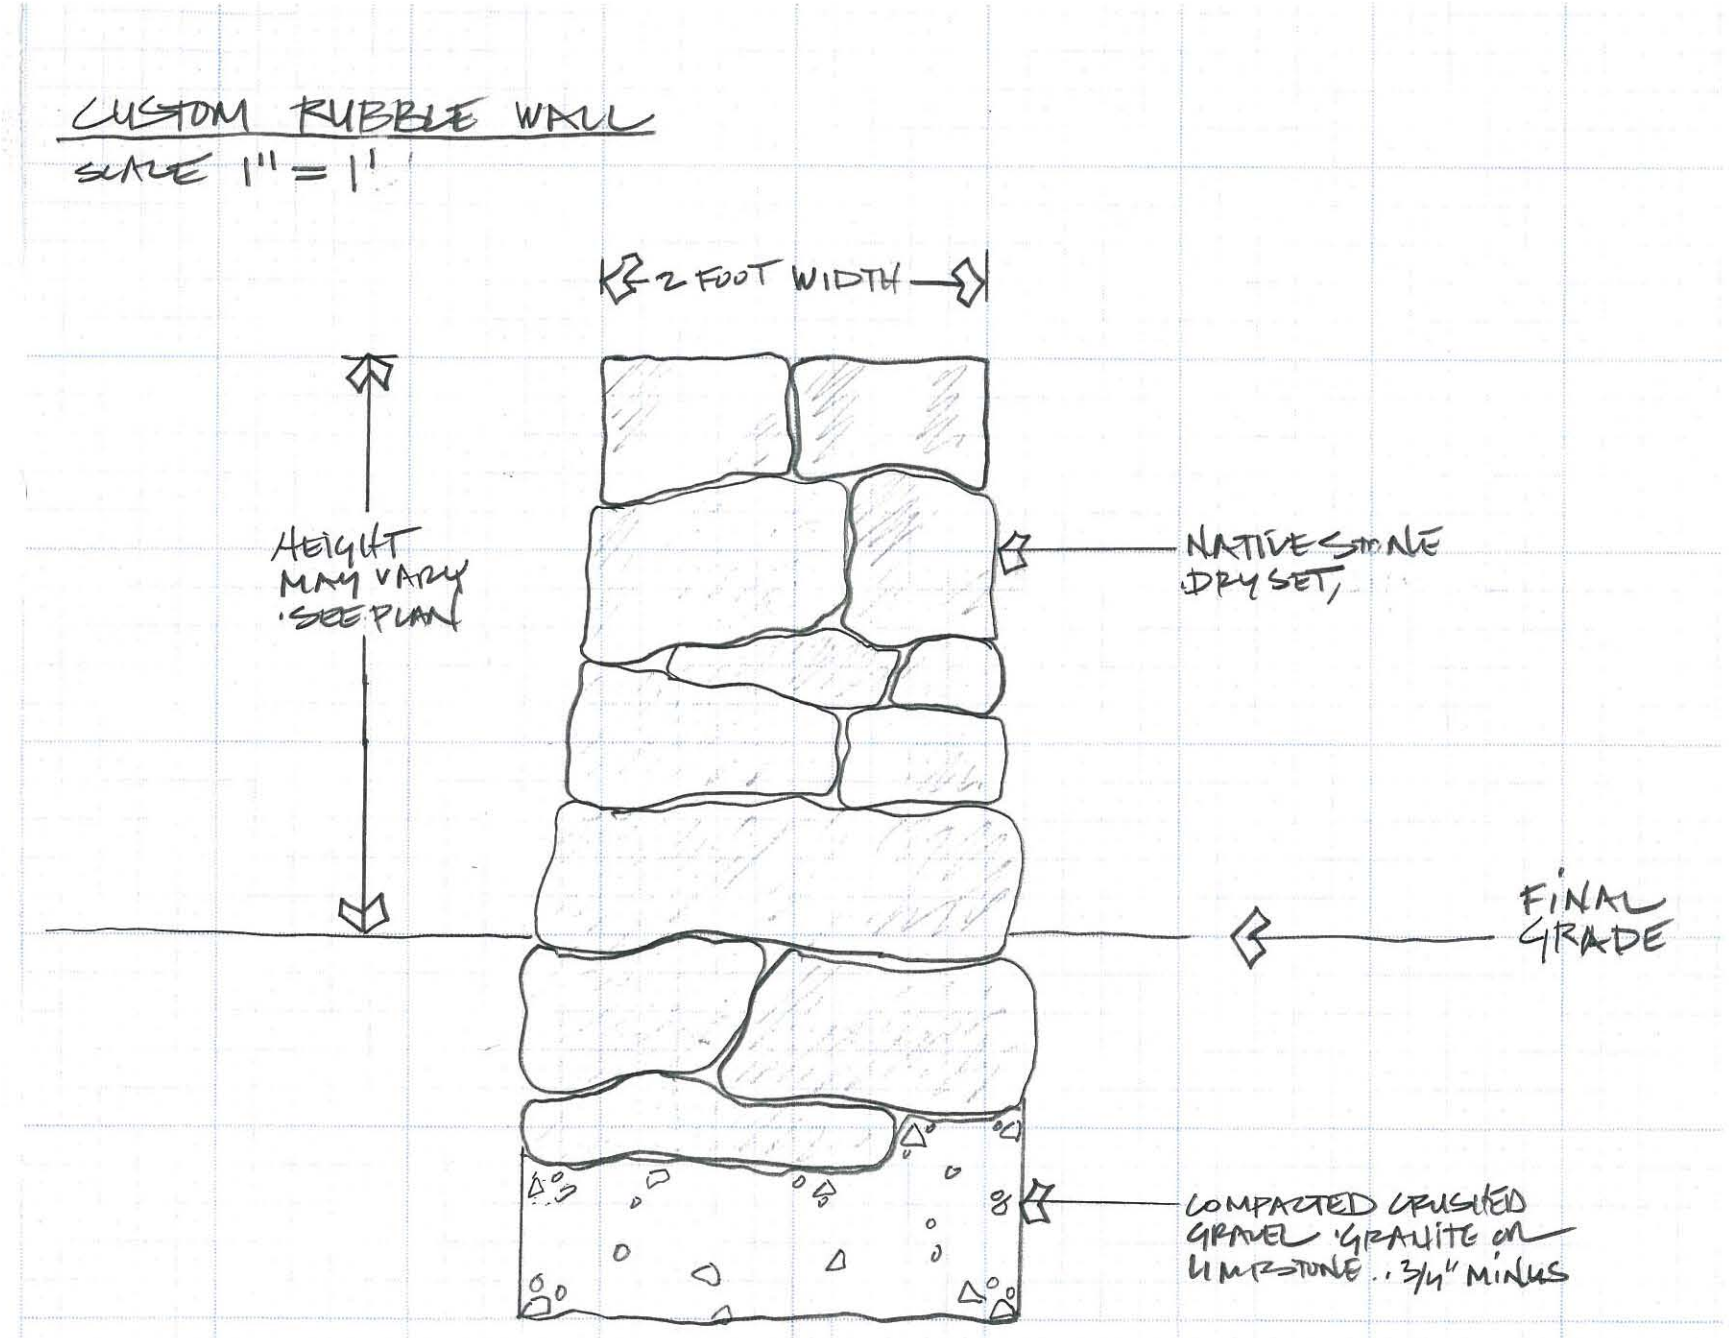 CUSTOM RUBBLE WALL
SCALE 1" = 1'
2 FOOT WIDTH
HEIGHT
MAY VARY
·SEE PLAN
NATIVE STONE
DRY SET,
FINAL
GRADE
COMPACTED CRUSHED
GRAVEL ·GRANITE OR
LIMESTONE.. 3/4" MINUS